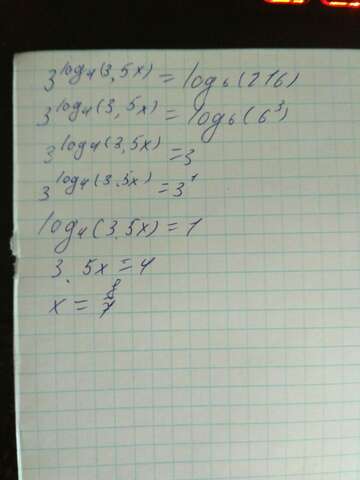 3^log₄(3,5x) = log₆(216)
3^log₄(3,5x) = log₆(6³)
3^log₄(3,5x) = 3
3^log₄(3.5x) = 3¹
log₄(3.5x) = 1
3.5x = 4
x = 8/7